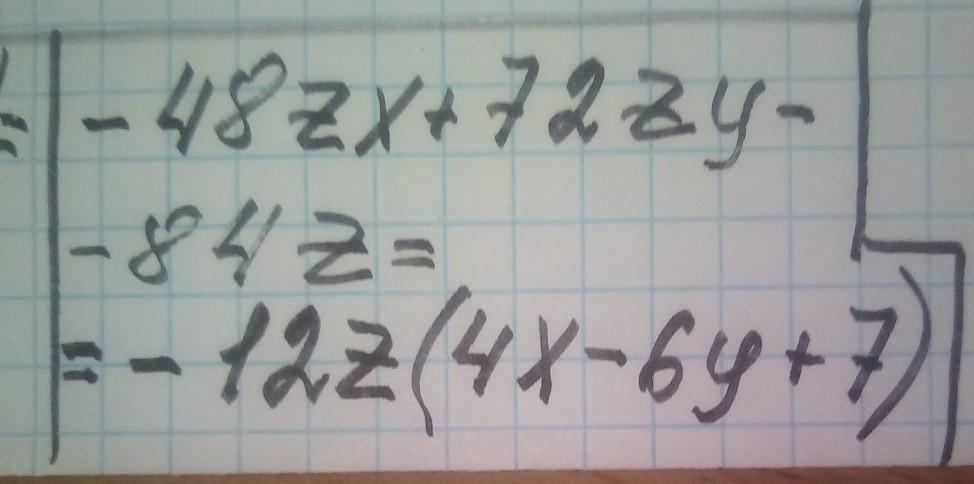 = - 48zx + 72zy -
- 84z =
= - 12z(4x - 6y + 7)